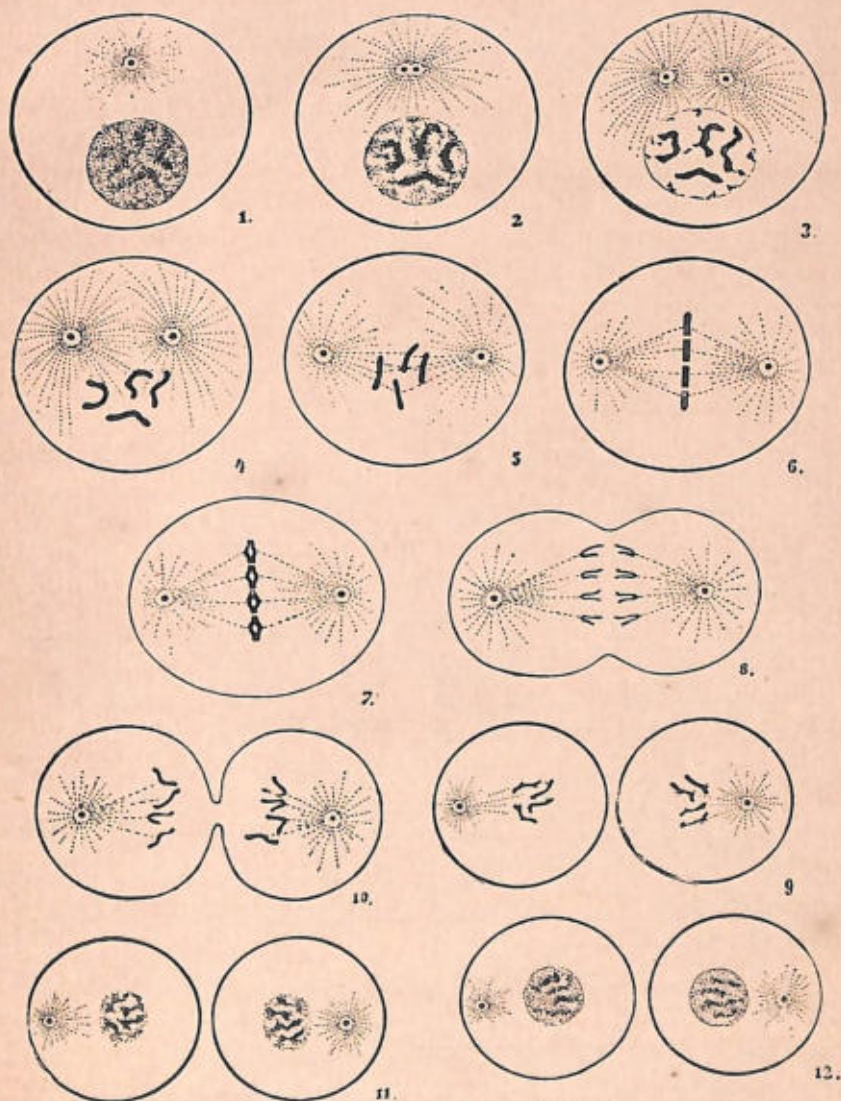 1.
2
3.
4
5
6.
7.
8.
10.
9
11.
12.